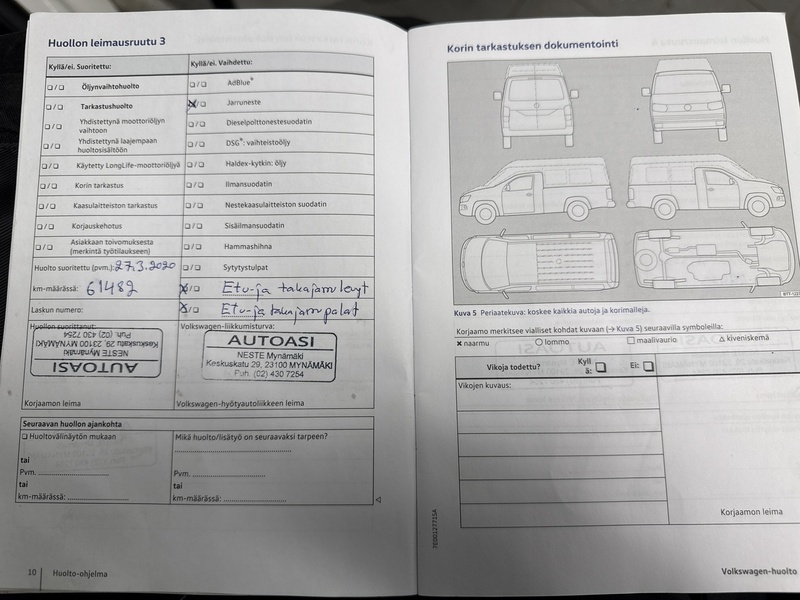 Huollon leimausruutu 3
Kyllä/ei. Suoritettu:
Kyllä/ei. Vaihdettu:
❑ / ❑ Öljynvaihtohuolto
❑ / ❑ AdBlue®
❑ / ❑ Tarkastushuolto
☒ / ❑ Jarruneste
❑ / ❑ Yhdistettynä moottoriöljyn
vaihtoon
❑ / ❑ Dieselpolttonestesuodatin
❑ / ❑ Yhdistettynä laajempaan
huoltosisältöön
❑ / ❑ DSG®: vaihteistoöljy
❑ / ❑ Käytetty LongLife-moottoriöljyä
❑ / ❑ Haldex-kytkin: öljy
❑ / ❑ Korin tarkastus
❑ / ❑ Ilmansuodatin
❑ / ❑ Kaasulaitteiston tarkastus
❑ / ❑ Nestekaasulaitteiston suodatin
❑ / ❑ Korjauskehotus
❑ / ❑ Sisäilmansuodatin
❑ / ❑ Asiakkaan toivomuksesta
(merkintä työtilaukseen)
❑ / ❑ Hammashihna
Huolto suoritettu (pvm.): 27.3.2020
❑ / ❑ Sytytystulpat
km-määrässä: 61482
☒ / ❑ Etu-ja takajarrulevyt
Laskun numero:
☒ / ❑ Etu-ja takajarrupalat
Huollon suorittanut:
AUTOASI
NESTE Mynämäki
Keskuskatu 29, 23100 MYNÄMÄKI
Puh. (02) 430 7254
Korjaamon leima
Volkswagen-liikkumisturva:
AUTOASI
NESTE Mynämäki
Keskuskatu 29, 23100 MYNÄMÄKI
Puh. (02) 430 7254
Volkswagen-hyötyautoliikkeen leima
Seuraavan huollon ajankohta
❑ Huoltovälinäytön mukaan
tai
Pvm.
tai
km-määrässä:
Mikä huolto/lisätyö on seuraavaksi tarpeen?
Pvm.
tai
km-määrässä:
10 Huolto-ohjelma
Korin tarkastuksen dokumentointi
Kuva 5 Periaatekuva: koskee kaikkia autoja ja korimalleja.
Korjaamo merkitsee vialliset kohdat kuvaan (→ Kuva 5) seuraavilla symboleilla:
✖ naarmu ○ lommo □ maalivaurio △ kiveniskemä
Vikoja todettu? Kyll
ä: ❑ Ei: ❑
Vikojen kuvaus:
Korjaamon leima
7E0012771SA
Volkswagen-huolto